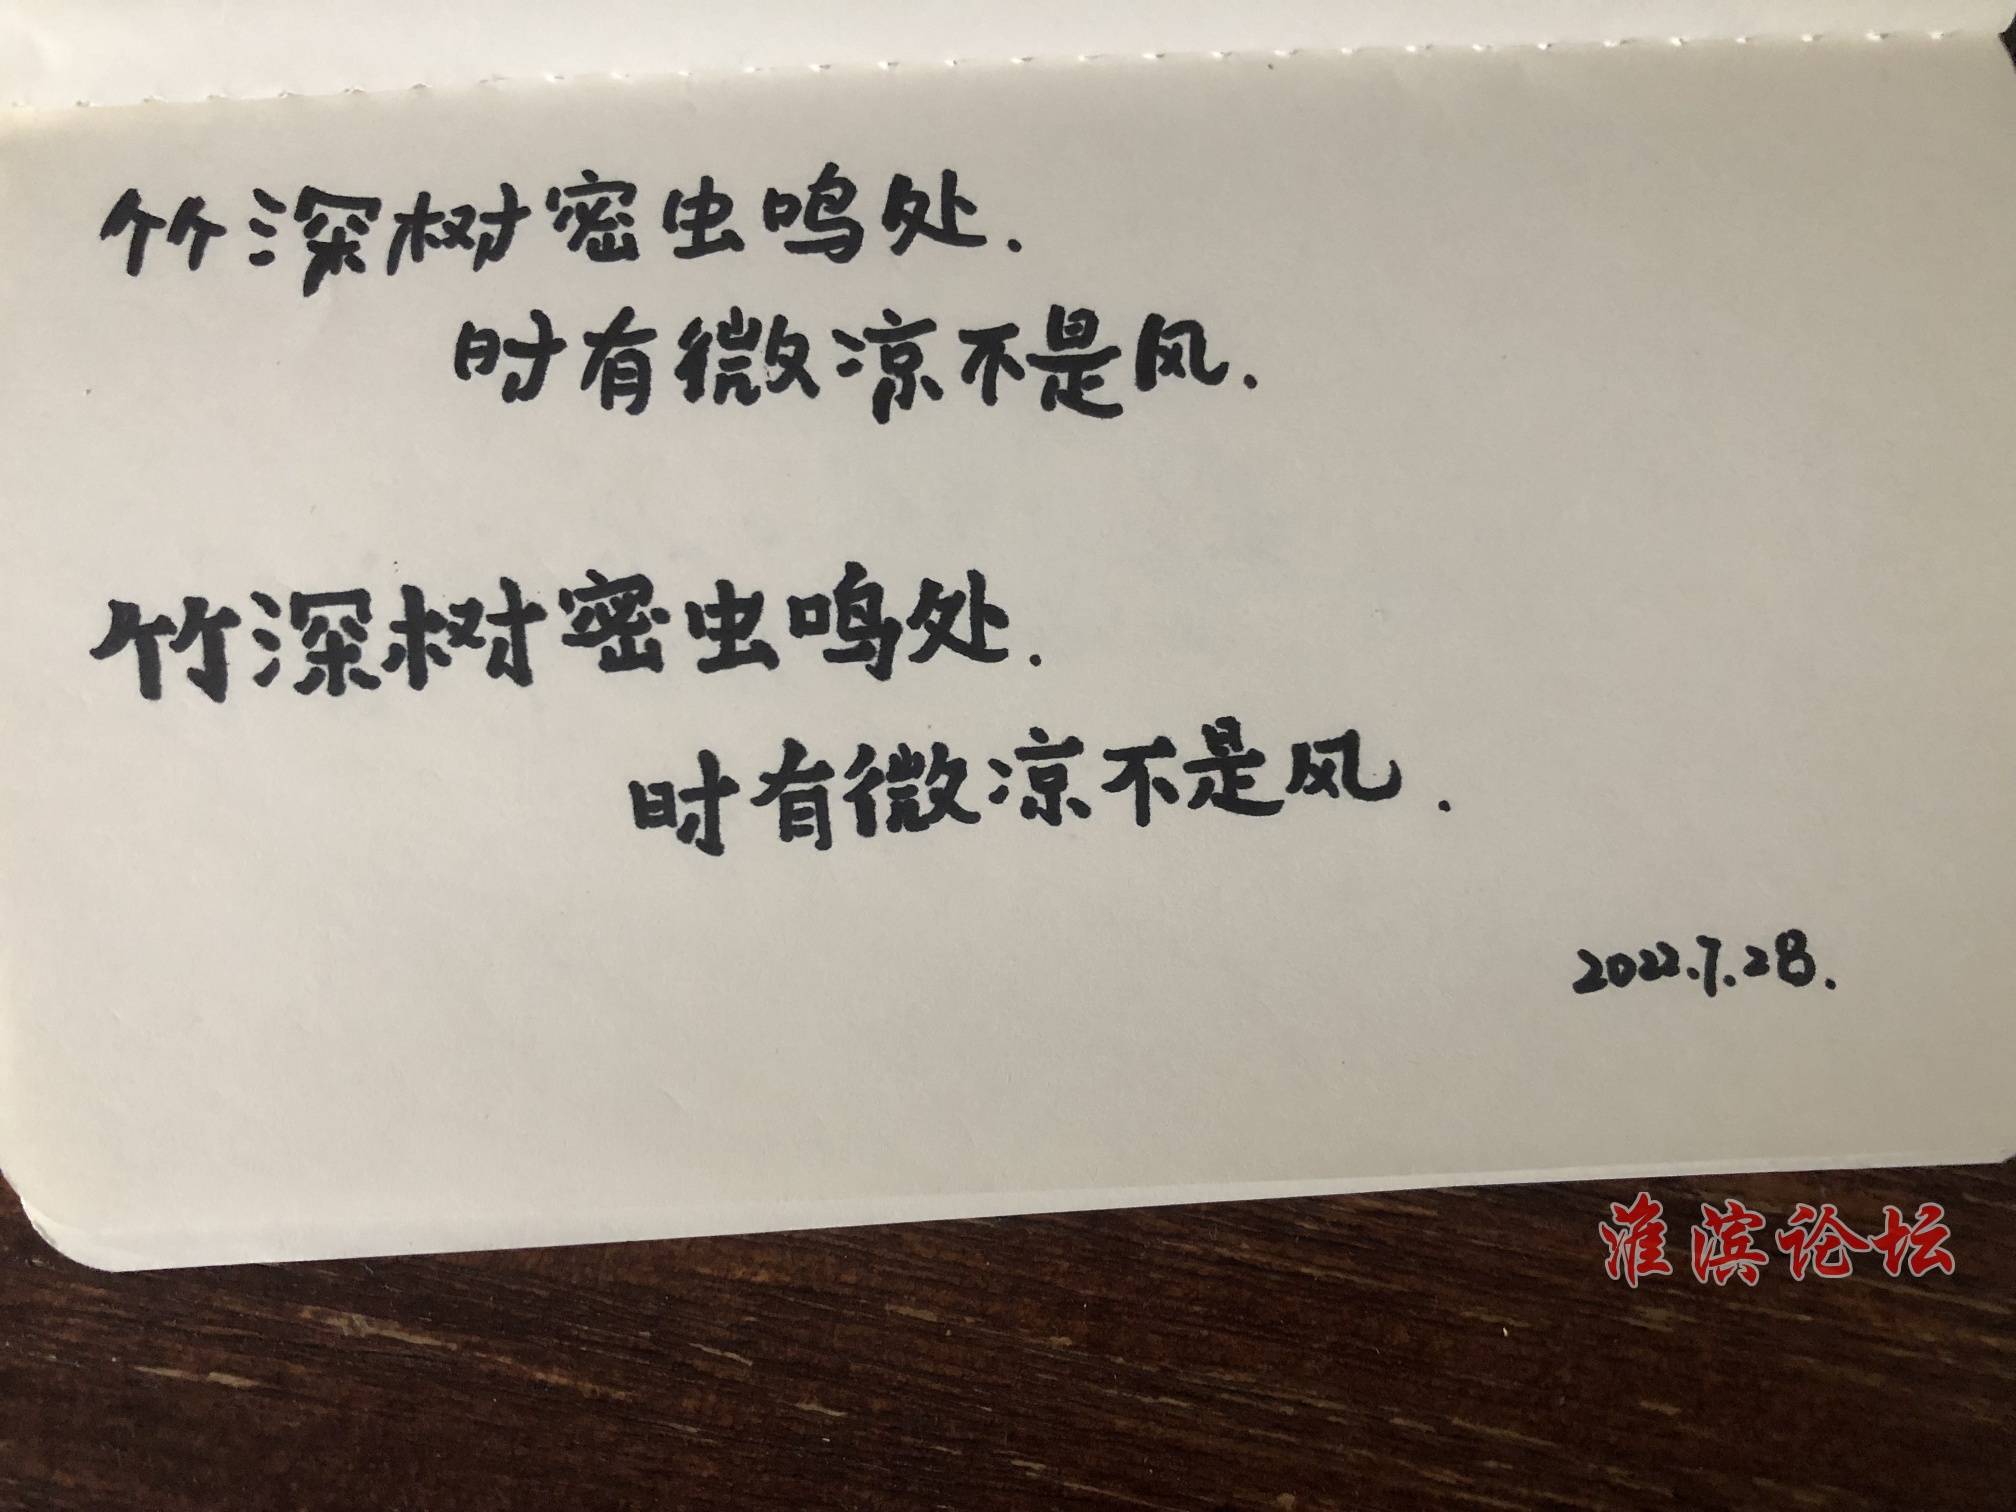 竹深树密虫鸣处.
时有微凉不是风.
竹深树密虫鸣处.
时有微凉不是风.
2022.7.28.
淮滨论坛